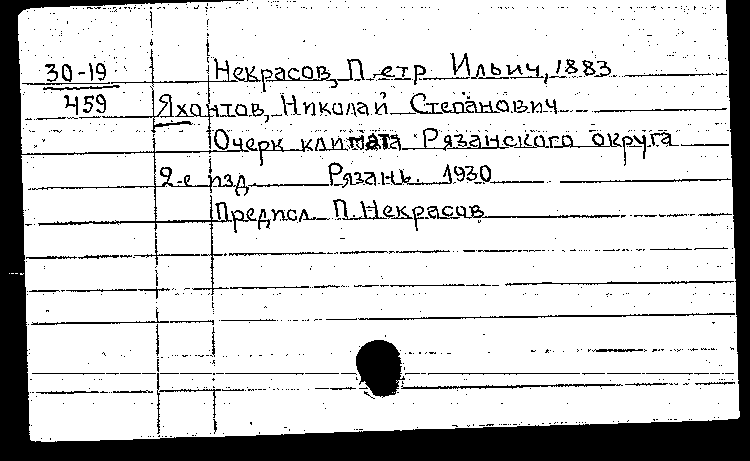 30-19 Некрасов, Петр Ильич, 1883
459 Яхонтов, Николай Степанович
Очерк климата Рязанского округа
2-е изд. Рязань. 1930
Предисл. П. Некрасов